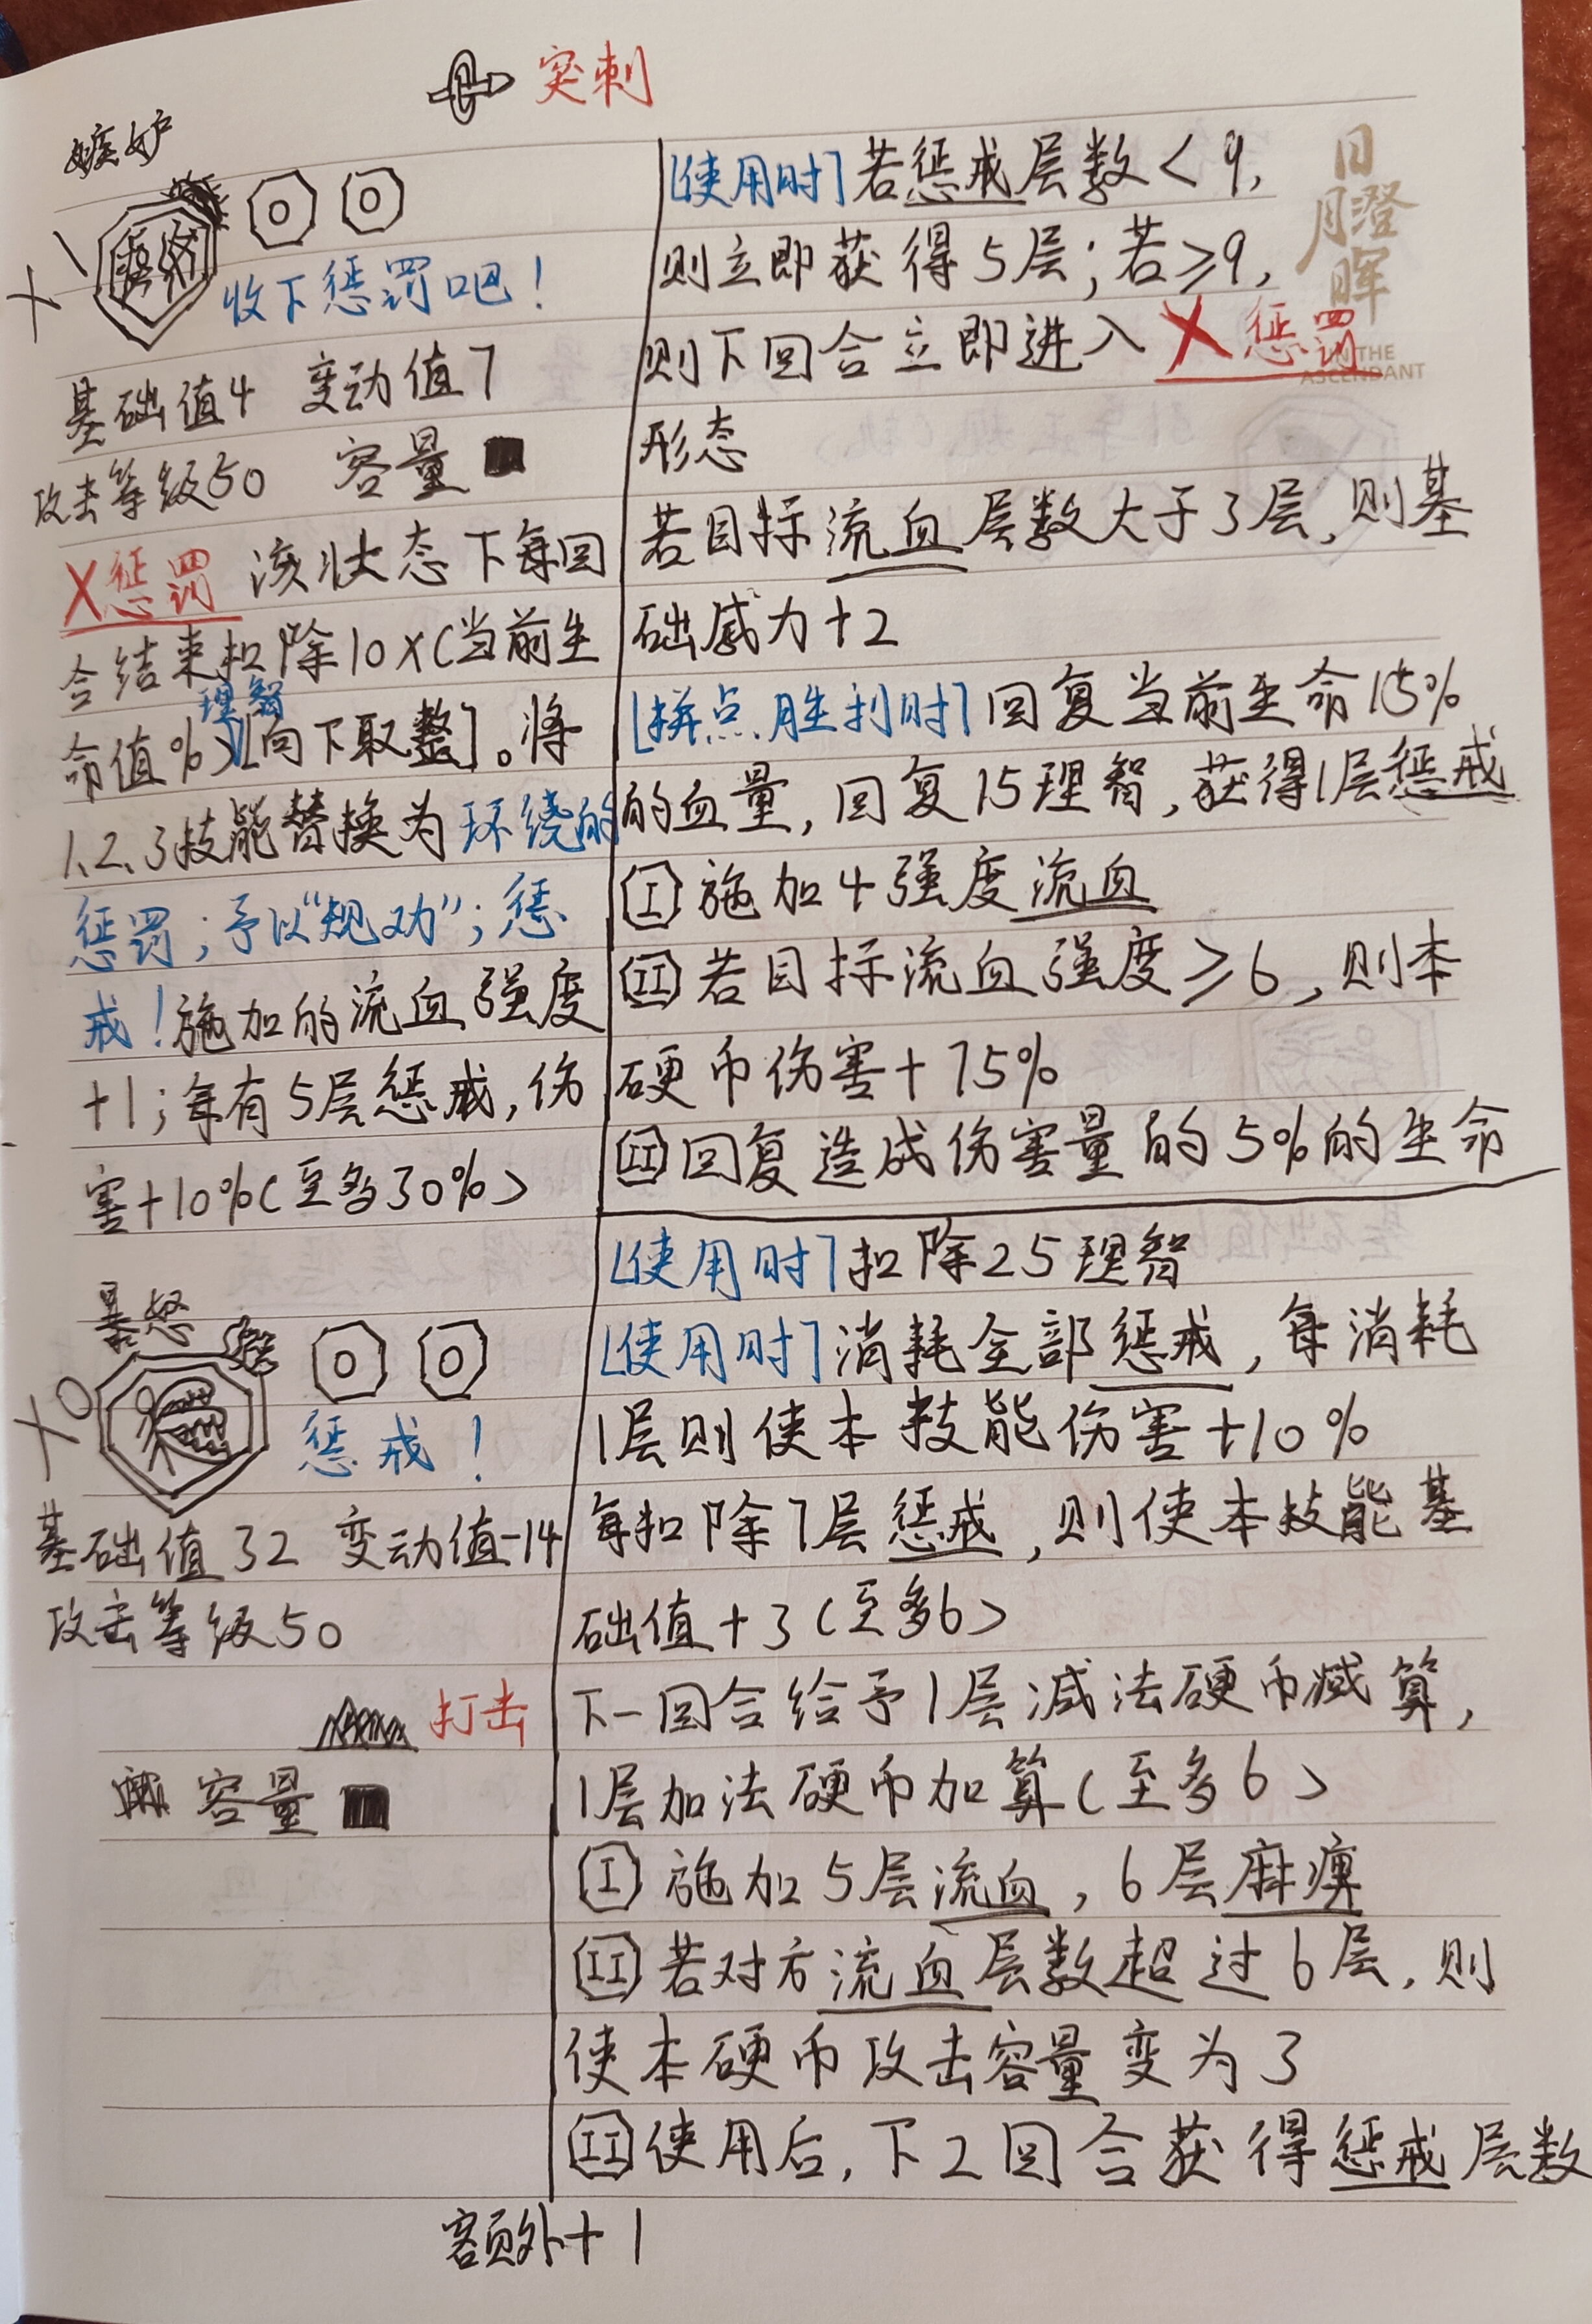 突刺
嫉妒
×1
收下惩罚吧!
基础值4 变动值7
攻击等级50 容量■
X惩罚 该状态下每回
合结束扣除10×(当前生
命值%)理智[向下取整]。将
1、2、3技能替换为环绕的
惩罚;予以“规劝”;惩
戒!施加的流血强度
+1;每有5层惩戒,伤
害+10%(至多30%)
[使用时]若惩戒层数<9,
则立即获得5层;若≥9,
则下回合立即进入X惩罚
形态
若目标流血层数大于3层,则基
础威力+2
[拼点胜利时]回复当前生命15%
的血量,回复15理智,获得1层惩戒
I 施加4强度流血
II 若目标流血强度≥6,则本
硬币伤害+75%
II 回复造成伤害量的5%的生命
暴怒
×0
惩戒!
基础值32 变动值-14
攻击等级50
打击
容量■
[使用时]扣除25理智
[使用时]消耗全部惩戒,每消耗
1层则使本技能伤害+10%
每扣除7层惩戒,则使本技能基
础值+3(至多6)
下一回合给予1层减法硬币减算,
1层加法硬币加算(至多6)
I 施加5层流血,6层麻痹
II 若对方流血层数超过6层,则
使本硬币攻击容量变为3
II 使用后,下2回合获得惩戒层数
额外+1
日月澄晖
IN THE
ASCENDANT